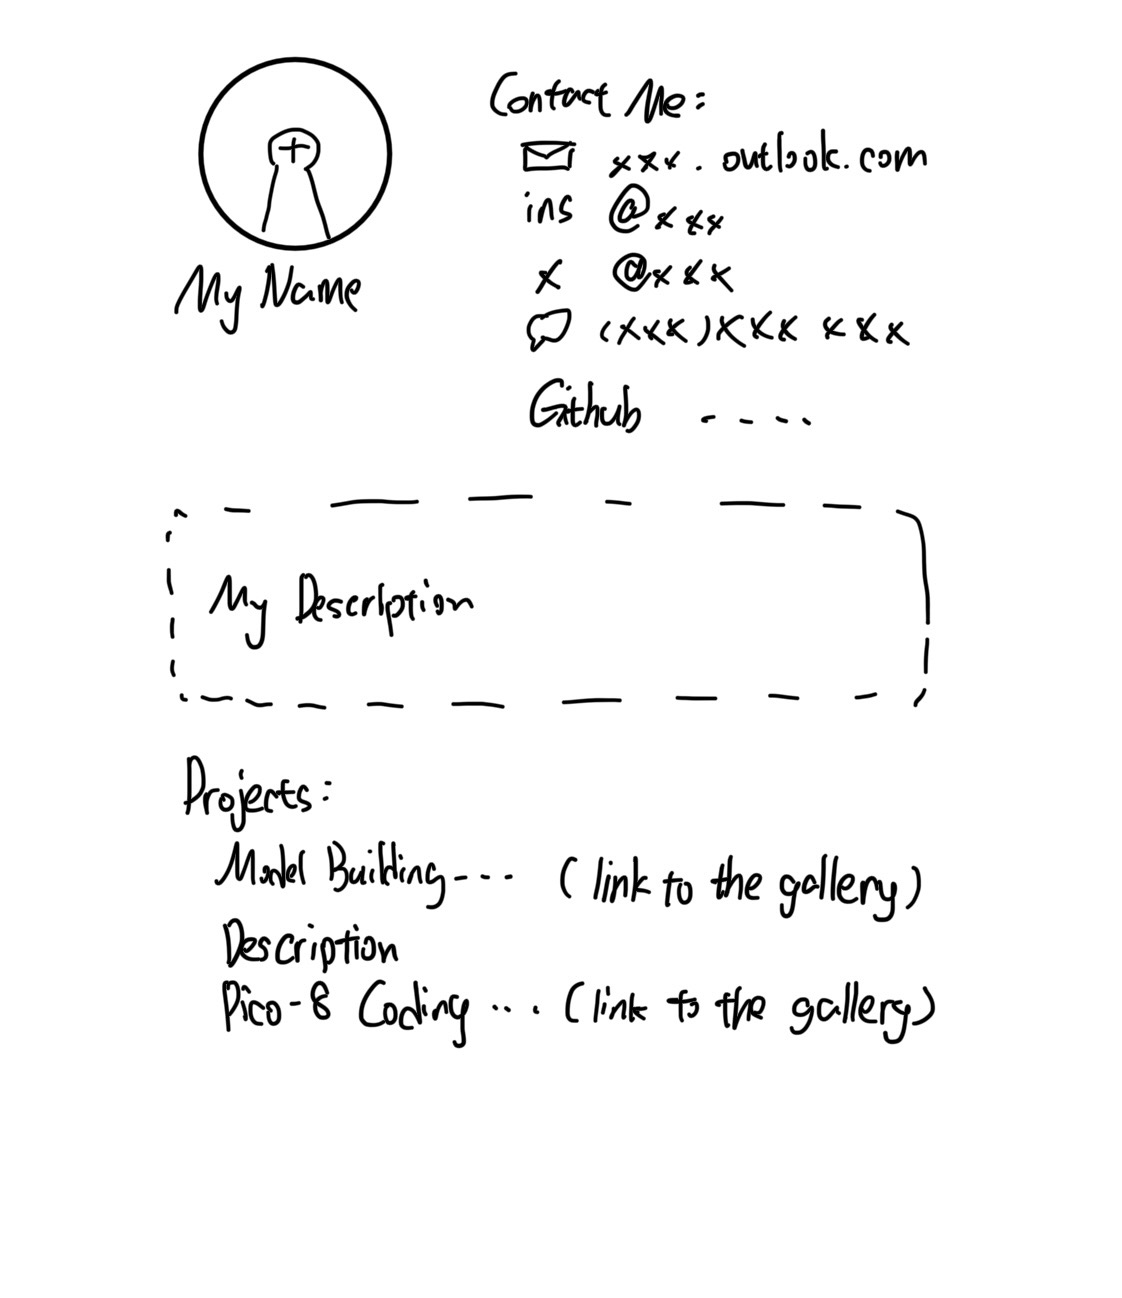 My Name
Contact Me:
xxx. outlook.com
ins @xxx
X @xxx
(xxx)xxx xxx
Github ----
My Description
Projects:
Model Building--- (link to the gallery)
Description
Pico-8 Coding ... (link to the gallery)